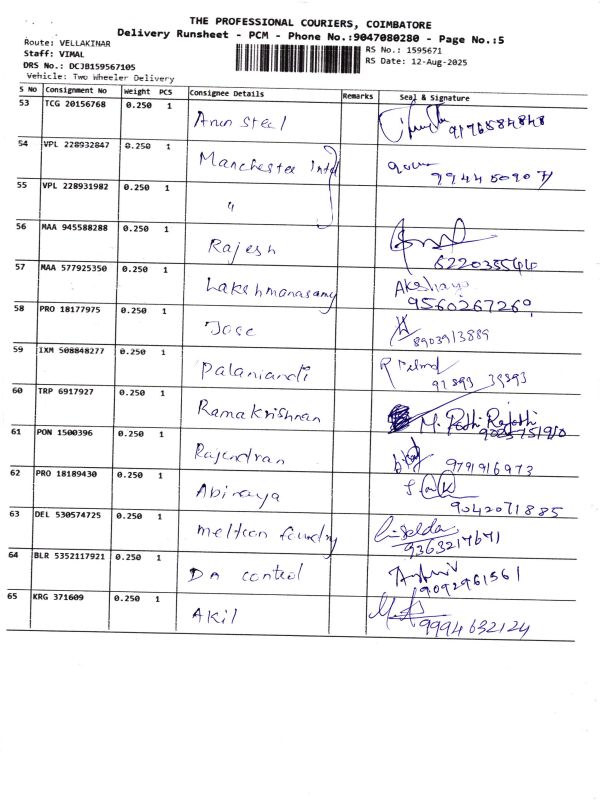 THE PROFESSIONAL COURIERS, COIMBATORE
Delivery Runsheet - PCM - Phone No.:9047080280 - Page No.:5
Route: VELLAKINAR
Staff: VIMAL
DRS No.: DCJB159567105
Vehicle: Two Wheeler Delivery
RS No.: 1595671
RS Date: 12-Aug-2025
S No Consignment No Weight PCS Consignee Details Remarks Seal & Signature
53 TCG 20156768 0.250 1 Arun Steel 9176584848
54 VPL 228932847 0.250 1 Manchester Intel 9944450907
55 VPL 228931982 0.250 1 "
56 MAA 945588288 0.250 1 Rajesh
57 MAA 577925350 0.250 1 Lakshmanasamy Akshaya 9560267260
58 PRO 18177975 0.250 1 Jose 8903913889
59 IXM 508848277 0.250 1 Palaniandi 91893 39393
60 TRP 6917927 0.250 1 Ramakrishnan
61 PON 1500396 0.250 1 Rajendran 9791916973
62 PRO 18189430 0.250 1 Abinaya 9042071885
63 DEL 530574725 0.250 1 meltcon foundry 9363217671
64 BLR 5352117921 0.250 1 Dn control 9092961561
65 KRG 371609 0.250 1 Akil 9994632124